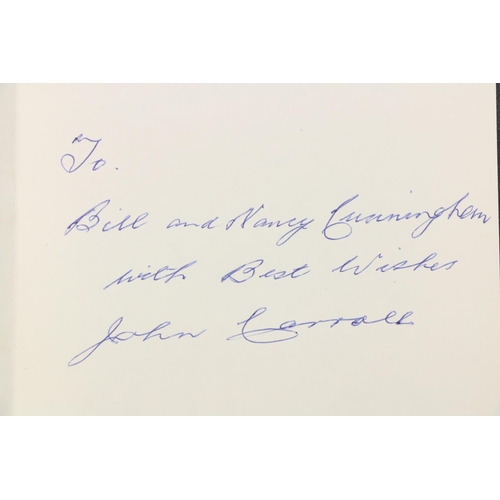 To.
Bill and Nancy Cunningham
with Best Wishes
John Carroll